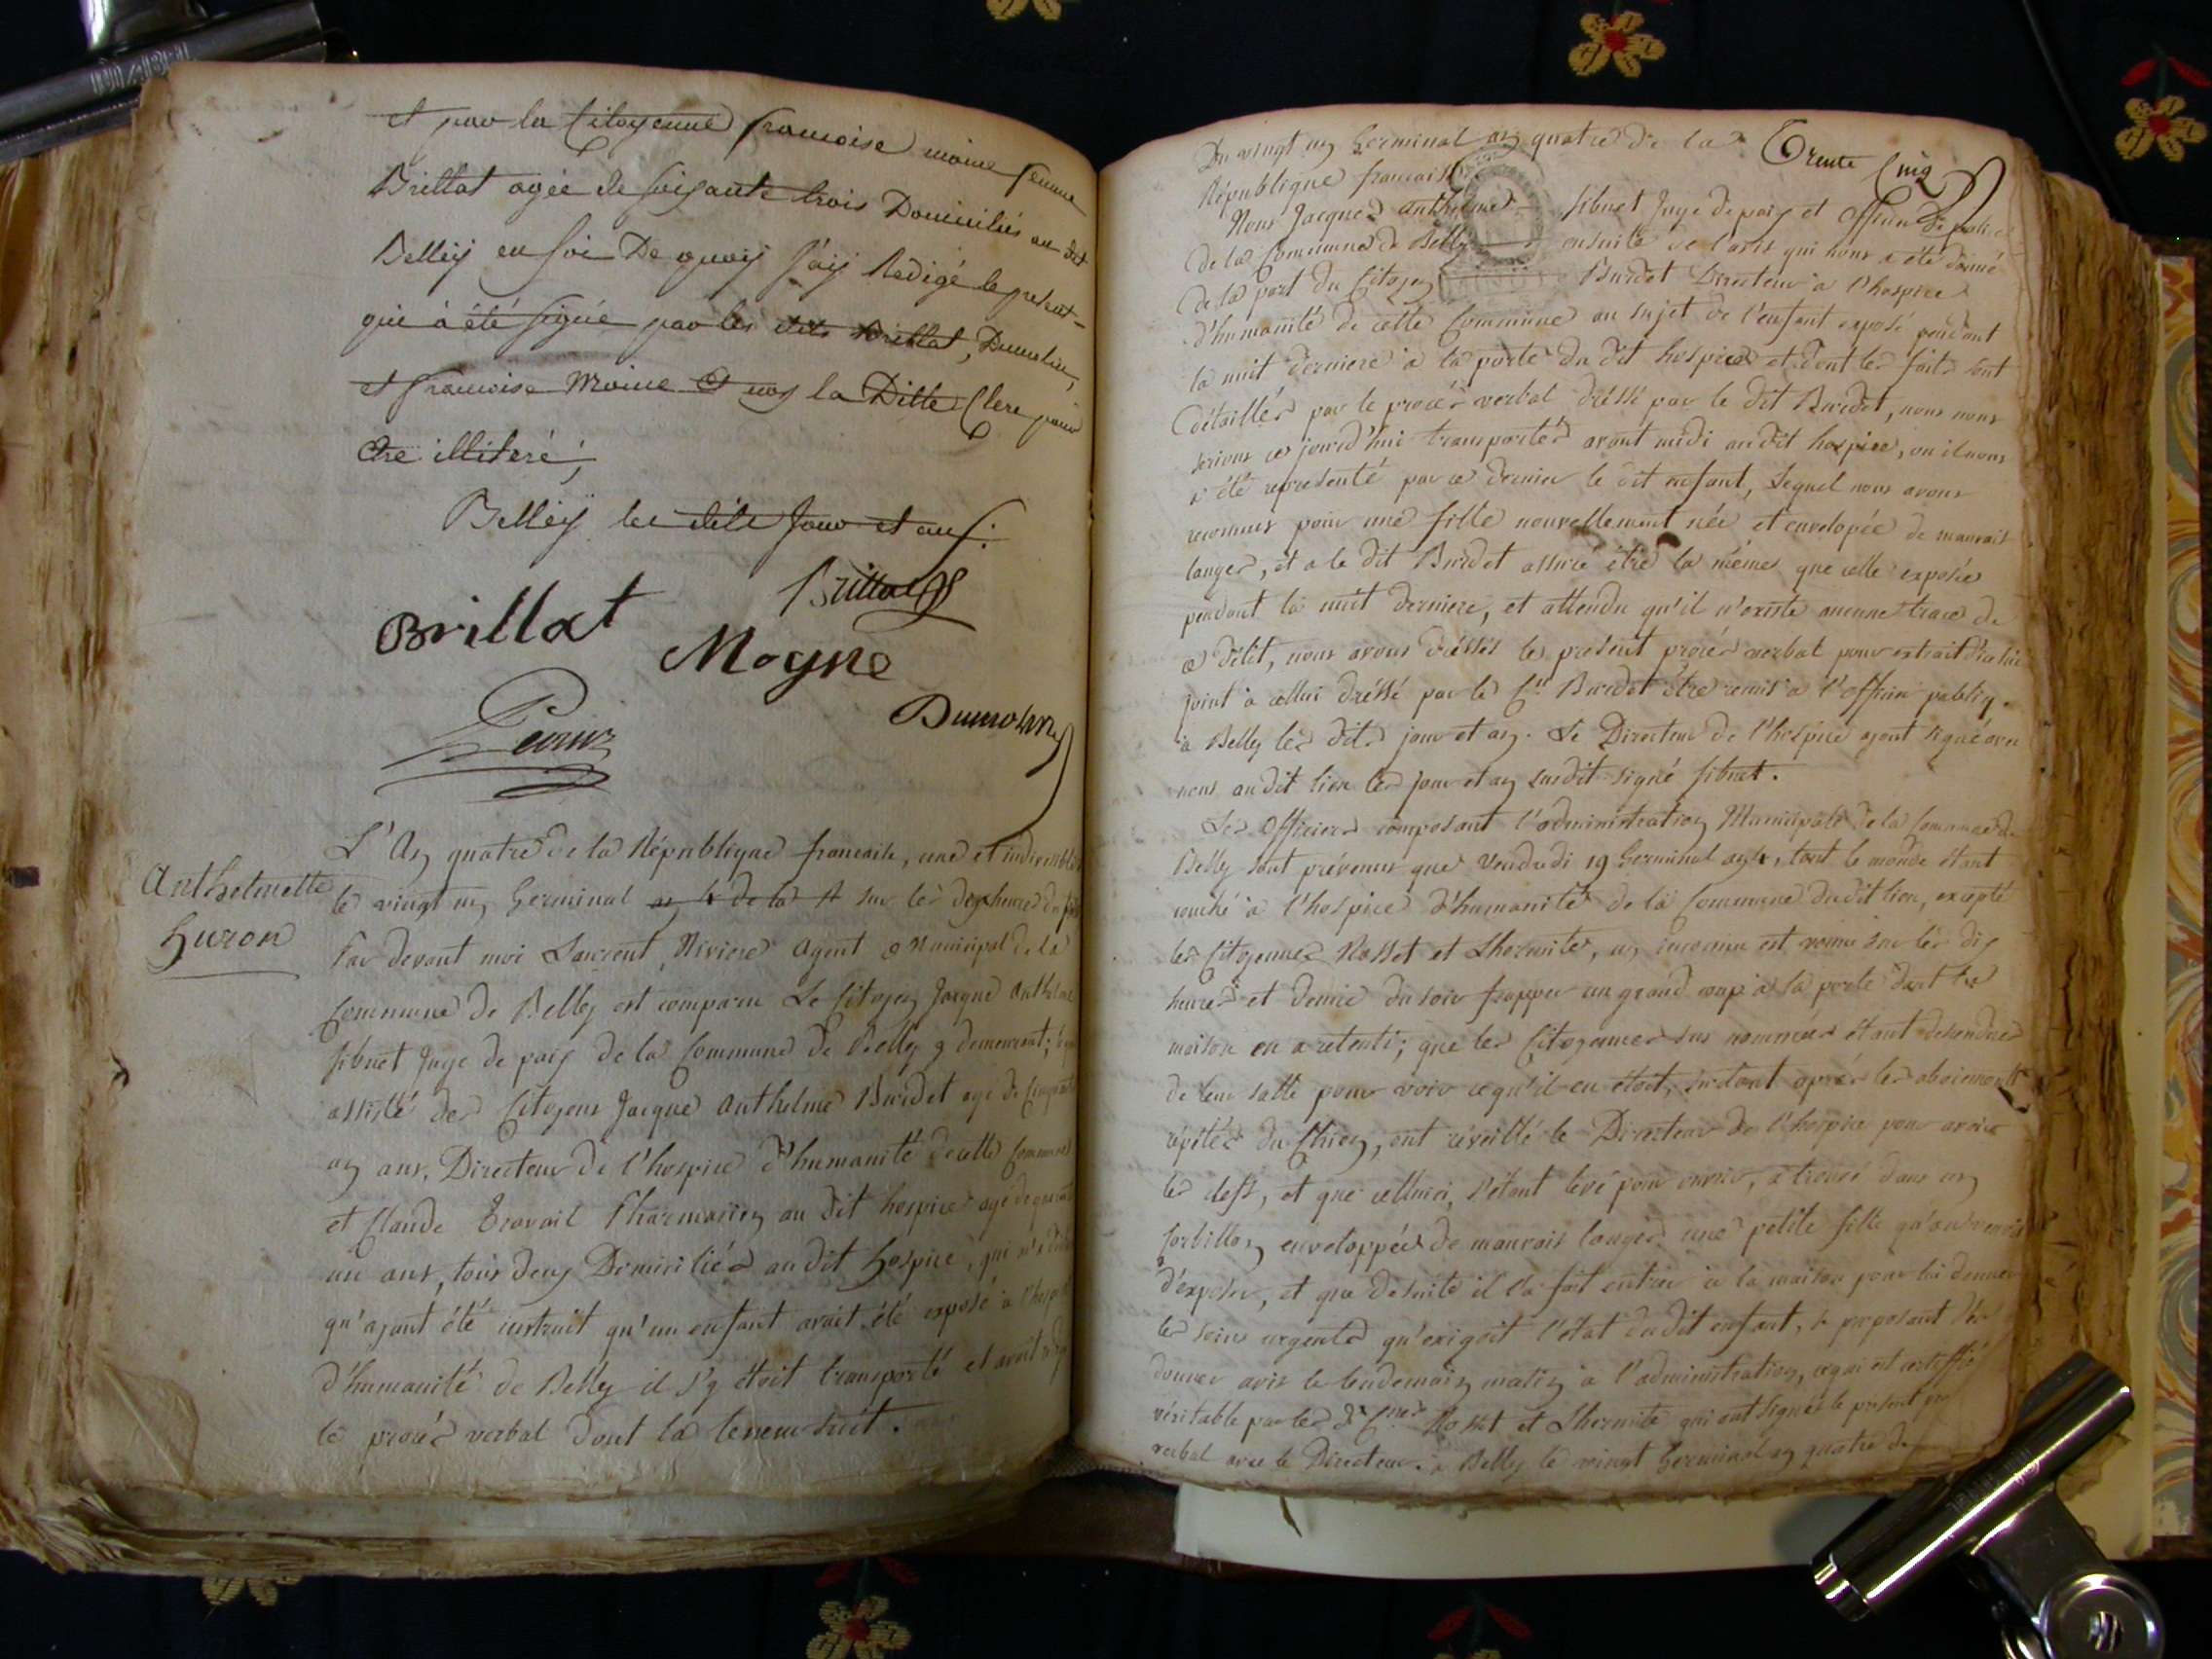 et par la Citoyenne francoise moine femme
Brillat agée de soixante trois Domiciliés au dit
Belley en foi De quoy J'aij Redigé le present
qui à été signé par les dits Brillat, Dumolin,
et francoise Moine et noy la Ditte Clere pour
Etre illiteré,
Belleÿ les dits Jour et an.
Brillat Brillat
Moyne
Dumolin
Anthelmette
huron
L'An quatre de la République francaise, une et indivisible
le vingt un Germinal an 4 de la R sur les dix heures du
Par devant moi Laurent Riviere Agent Municipal de la
Commune de Belley est comparu Le Citoyen Jacque Anthelme
sibuet Juge de paix de la Commune de Belley y demeurant;
assisté des Citoyens Jacque Anthelme Burdet agé de Cinquante
un ans, Directeur de l'hospice d'humanité de cette Commune
et Claude Travail Pharmacien au dit hospice agé de quarante
un ans, tous deux Domiciliés au dit hospice, qui m'a
qu'ayant été instruit qu'un enfant avait été exposé à l'hospice
d'humanité de Belley il s'y étoit transporté et avoit
le procés verbal dont la teneur suit.
Trente Cinq
Du vingt un Germinal an quatre de la
République francaise
Nous Jacques Anthelme sibuet Juge de paix et Officier de police
de la Commune de Belley ensuite de l'avis qui nous a été donné
de la part du Citoyen Burdet Directeur à l'hospice
d'humanité de cette Commune au sujet de l'enfant exposé pendant
la nuit derniere à la porte du dit hospice et dont les faits sont
détaillés par le procés verbal dréssé par le dit Burdet, nous nous
serions ce jourd'hui transportés avant midi au dit hospice, ou il nous
a été representé par ce dernier le dit enfant, Lequel nous avons
reconnus pour une fille nouvellement née et envelopée de mauvais
langes, et a le dit Burdet assuré être la mémes que celle exposée
pendant la nuit derniere, et attendu qu'il n'existe aucune trace de
ce délit, nous avons dréssés le présent procés verbal pour extrait d'icelui
joint à cellui dréssé par le Cn Burdet être remis à l'officier publiq.
à Belley les dits jour et an. Le Directeur de l'hospice ayant signé avec
nous au dit lieu les jour et an susdit signé sibuet.
Les Officiers composant l'administration Municipale de la Commune de
Belley sont prévenus que Vendredi 19 Germinal an 4, tout le monde étant
couché à l'hospice d'humanité de la Commune dudit lieu, excepté
les Citoyennes Rosset et Lhermite, un inconnu est venu sur les dix
heures et demie du soir frapper un grand coup à la porte dont la
maison en a retenti; que les Citoyennes sus nommées étant descendues
de leur salle pour voir ce qu'il en étoit, surtout aprés les aboiements
répétés du Chien, ont réveillé le Directeur de l'hospice pour avoir
les clefs, et que celluici, s'étant levé pour ouvrir, a trouvé dans un
Corbillon, enveloppée de mauvais langes une petite fille qu'on venoit
d'exposer, et que de suite il l'a fait entrer à la maison pour lui donner
les soins urgents qu'exigoit l'état dudit enfant, se proposant d'en
donner avis le lendemain matin à l'administration, ce qui est certiffié
véritable par les dt Cnes Rosset et Lhermite qui ont signés le present pro
verbal avec le Directeur. à Belley le vingt Germinal an quatre de